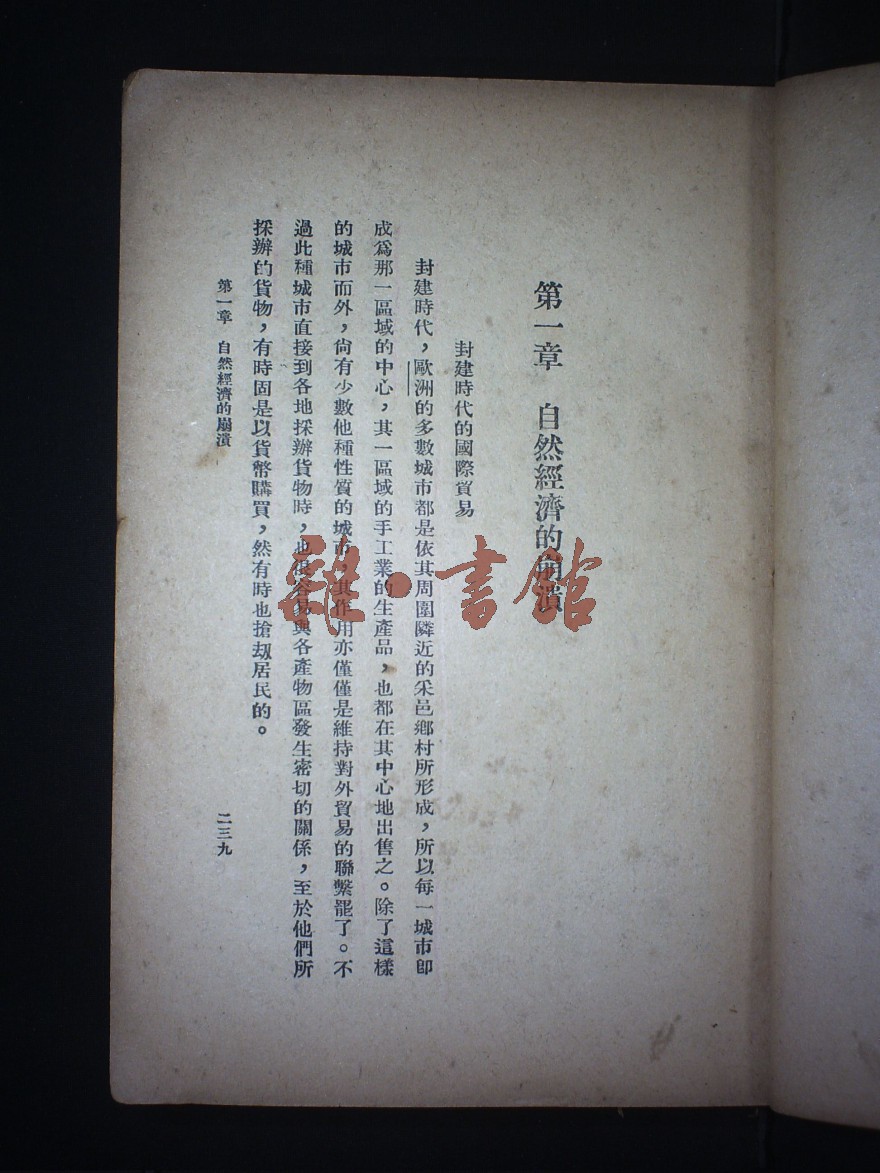 第一章　自然經濟的崩潰
封建時代的國際貿易
封建時代，歐洲的多數城市都是依其周圍隣近的采邑鄉村所形成，所以每一城市卽
成爲那一區域的中心，其一區域的手工業的生產品，也都在其中心地出售之。除了這樣
的城市而外，尙有少數他種性質的城市，其作用亦僅僅是維持對外貿易的聯繫罷了。不
過此種城市直接到各地採辦貨物時，也很容易與各產物區發生密切的關係，至於他們所
採辦的貨物，有時固是以貨幣購買，然有時也搶刼居民的。
第一章　自然經濟的崩潰
二三九
雜·書館